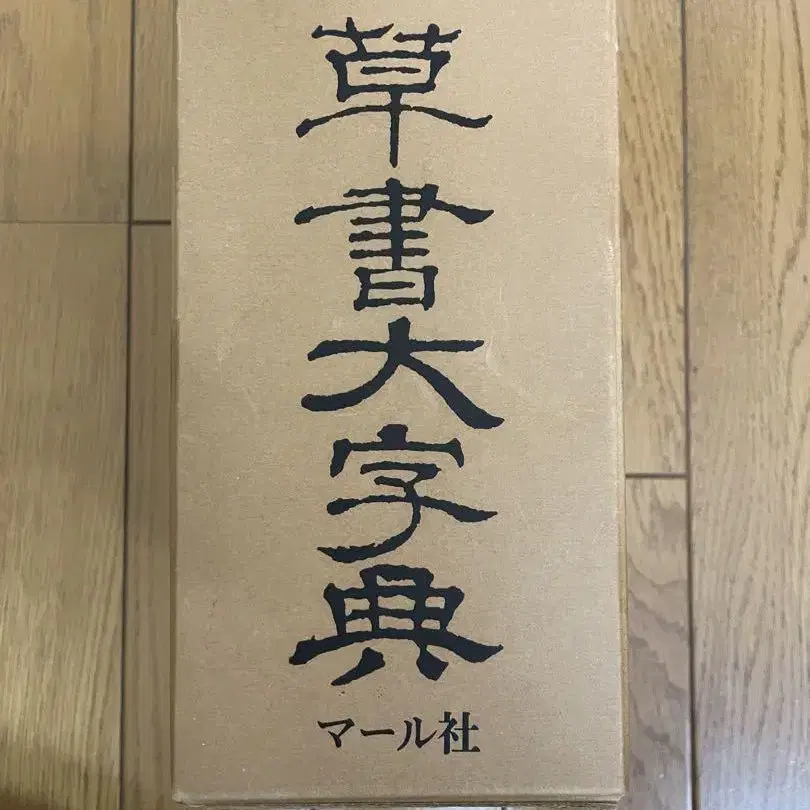 草書大字典
マール社